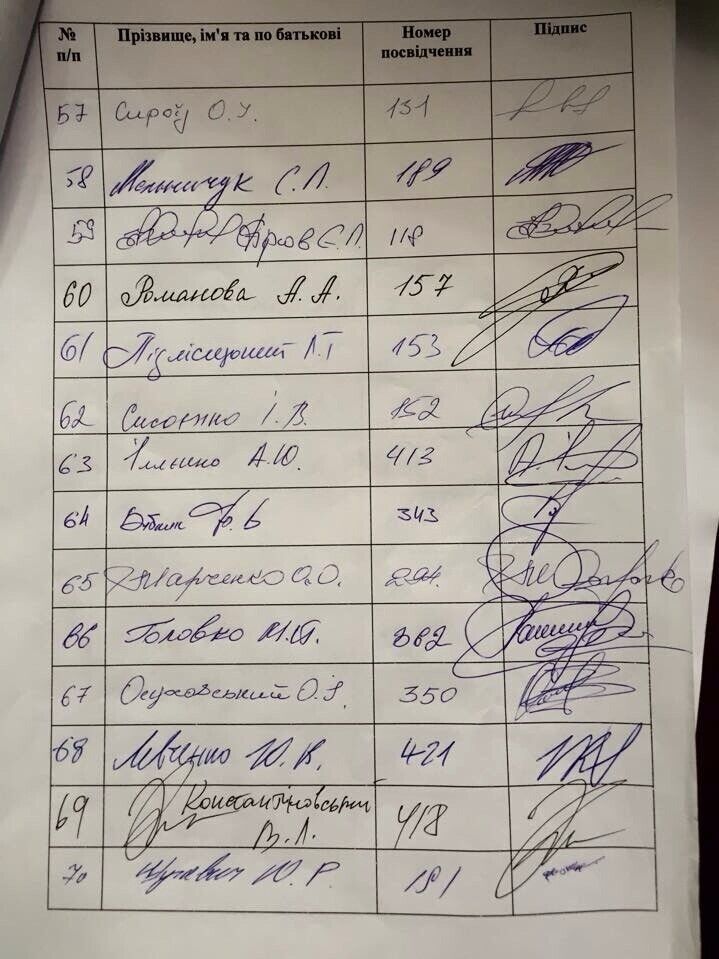 № п/п Прізвище, ім'я та по батькові Номер посвідчення Підпис
57 Сироїд О.І. 131
58 Мельничук С.П. 189
59 118
60 Романова А.А. 157
61 Підлісецький Л.Т 153
62 Сисоєнко І.В. 152
63 Іллєнко А.Ю. 413
64 343
65 Марченко О.О. 294.
66 Головко М.Й. 382
67 Осуховський О.І. 350
68 Левченко Ю.В. 421
69 Константіновський В.Л. 418
70 Ю.Р. 181